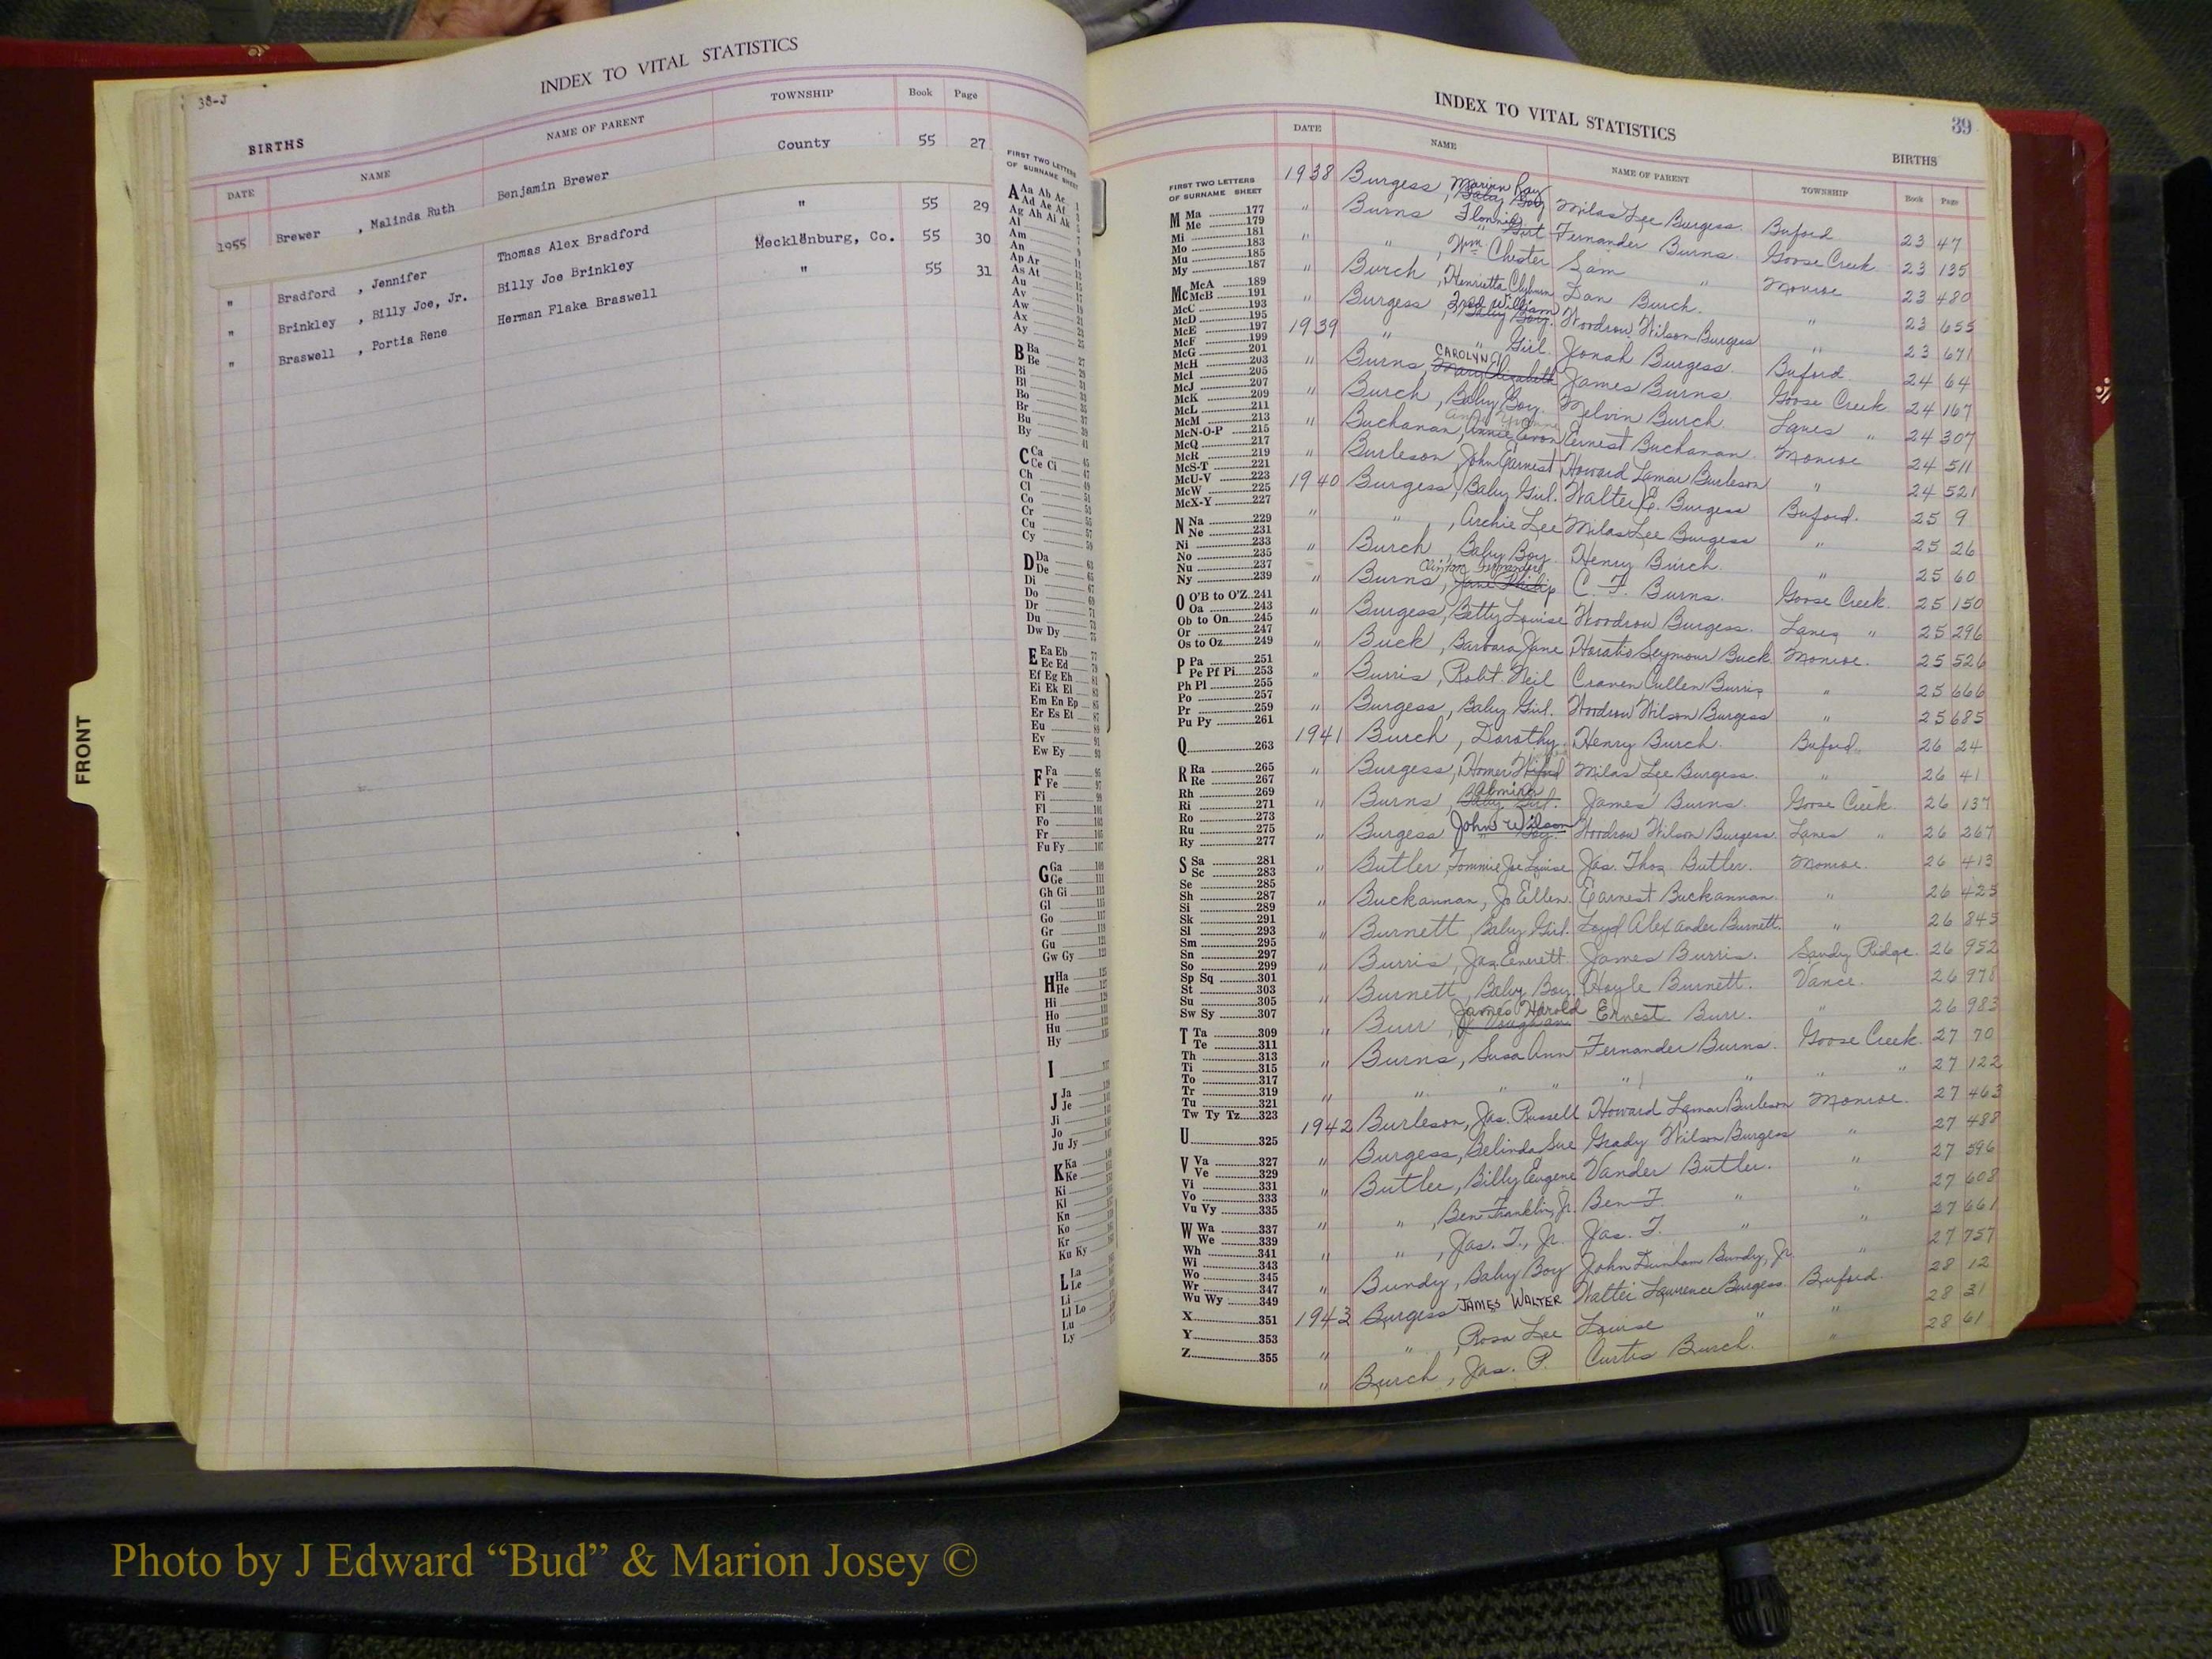 38-J
INDEX TO VITAL STATISTICS
BIRTHS
DATE NAME NAME OF PARENT TOWNSHIP Book Page
1955 Brewer , Malinda Ruth Benjamin Brewer County 55 27
" Bradford , Jennifer Thomas Alex Bradford " 55 29
" Brinkley , Billy Joe, Jr. Billy Joe Brinkley Mecklenburg, Co. 55 30
" Braswell , Portia Rene Herman Flake Braswell " 55 31
FIRST TWO LETTERS
OF SURNAME SHEET
A Aa Ab Ac
Ad Ae Af
Ag Ah Ai Ak
Al
Am
An
Ap Ar
As At
Au
Av
Aw
Ax
Ay
B Ba
Be
Bi
Bl
Bo
Br
Bu
By
C Ca
Ce Ci
Ch
Cl
Co
Cr
Cu
Cy
D Da
De
Di
Do
Dr
Du
Dw Dy
E Ea Eb
Ec Ed
Ef Eg Eh
Ei Ek El
Em En Ep
Er Es Et
Eu
Ev
Ew Ey
F Fa
Fe
Fi
Fl
Fo
Fr
Fu Fy
G Ga
Ge
Gh Gi
Gl
Go
Gr
Gu
Gw Gy
H Ha
He
Hi
Ho
Hu
Hy
I
J Ja
Je
Ji
Jo
Ju Jy
K Ka
Ke
Ki
Kl
Kn
Ko
Kr
Ku Ky
L La
Le
Li
Ll Lo
Lu
Ly
FRONT
INDEX TO VITAL STATISTICS
39
BIRTHS
DATE NAME NAME OF PARENT TOWNSHIP Book Page
FIRST TWO LETTERS
OF SURNAME SHEET
M Ma 177
Me 179
Mi 181
Mo 183
Mu 185
My 187
Mc McA 189
McB 191
McC 193
McD 195
McE 197
McF 199
McG 201
McH 203
McI 205
McJ 207
McK 209
McL 211
McM 213
McN-O-P 215
McQ 217
McR 219
McS-T 221
McU-V 223
McW 225
McX-Y 227
N Na 229
Ne 231
Ni 233
No 235
Nu 237
Ny 239
O O'B to O'Z 241
Oa 243
Ob to On 245
Or 247
Os to Oz 249
P Pa 251
Pe Pf Pi 253
Ph Pl 255
Po 257
Pr 259
Pu Py 261
Q 263
R Ra 265
Re 267
Rh 269
Ri 271
Ro 273
Ru 275
Ry 277
S Sa 281
Sc 283
Se 285
Sh 287
Si 289
Sk 291
Sl 293
Sm 295
Sn 297
So 299
Sp Sq 301
St 303
Su 305
Sw Sy 307
T Ta 309
Te 311
Th 313
Ti 315
To 317
Tr 319
Tu 321
Tw Ty Tz 323
U 325
V Va 327
Ve 329
Vi 331
Vo 333
Vu Vy 335
W Wa 337
We 339
Wh 341
Wi 343
Wo 345
Wr 347
Wu Wy 349
X 351
Y 353
Z 355
1938 Burgess, Marion Ray Baby Boy Milas Lee Burgess Buford 23 47
" Burns Fernander Burns. Goose Creek 23 135
" " , Wm. Chester Sam " Monroe 23 480
" Burch, Henrietta Dan Burch. " 23 655
" Burgess, Fred William Baby Boy. Woodrow Wilson Burgess " 23 671
1939 " " Girl. Jonah Burgess. Buford. 24 64
" Burns, CAROLYN Mary Elizabeth James Burns Goose Creek 24 167
" Burch, Baby Boy. Melvin Burch. Lanes " 24 307
" Buchanan, Ernest Buchanan. Monroe 24 511
" Burleson, John Earnest Howard Lamar Burleson " 24 521
1940 Burgess, Baby Girl. Walter E. Burgess Buford. 25 9
" " , Archie Lee Milas Lee Burgess " 25 26
" Burch, Baby Boy. Henry Burch. " 25 60
" Burns, Clinton C. F. Burns. Goose Creek. 25 150
" Burgess, Betty Louise Woodrow Burgess. Lanes " 25 296
" Buck, Barbara Jane Horatio Seymour Buck Monroe. 25 526
" Burris, Robt. Neil Craven Cullen Burris " 25 666
" Burgess, Baby Girl. Woodrow Wilson Burgess " 25 685
1941 Burch, Dorothy. Henry Burch. Buford 26 24
" Burgess, Homer Milas Lee Burgess. " 26 41
" Burns, Almina Baby Girl. James Burns. Goose Creek. 26 137
" Burgess John Wilson " Boy. Woodrow Wilson Burgess. Lanes " 26 267
" Butler, Tommie Joe Louise Jas. Thos. Butler. Monroe. 26 413
" Buckannan, Jo Ellen. Earnest Buckannan. " 26 425
" Burnett, Baby Girl. Loyd Alexander Burnett. " 26 845
" Burris, Jas. Everett James Burris. Sandy Ridge. 26 952
" Burnett, Baby Boy. Hoyle Burnett. Vance. 26 978
" Burr, James Harold J. Vaughan Ernest Burr. " 26 983
" Burns, Susa Ann Fernander Burns. Goose Creek. 27 70
" " " " " " " " 27 122
1942 Burleson, Jas. Russell Howard Lamar Burleson Monroe. 27 463
" Burgess, Belinda Sue Grady Wilson Burgess " 27 488
" Butler, Billy Eugene Vander Butler. " 27 596
" " , Ben Franklin, Jr. Ben F. " " 27 608
" " , Jas. T., Jr. Jas. T. " " 27 661
" Bundy, Baby Boy John Dunham Bundy, Jr. " 27 757
1943 Burgess JAMES WALTER Walter Lawrence Burgess. Buford. 28 12
" " , Rosa Lee Louise " " 28 31
" Burch, Jas. P. Curtis Burch. " 28 61
Photo by J Edward “Bud” & Marion Josey ©